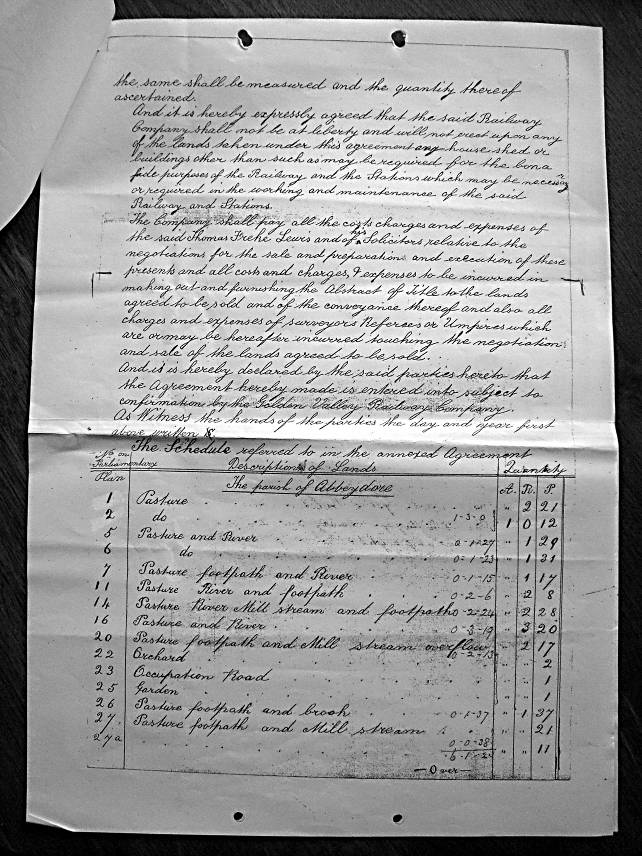 the same shall be measured and the quantity thereof
ascertained.
And it is hereby expressly agreed that the said Railway
Company shall not be at liberty and will not erect upon any
of the lands taken under this agreement any house shed or
buildings other than such as may be required for the bona
fide purposes of the Railway and the Stations which may be necessary
or required in the working and maintenance of the said
Railway and Stations.
The Company shall pay all the costs charges and expenses of
the said Thomas Freke Lewis and of his Solicitors relative to the
negotiations for the sale and preparation and execution of these
presents and all costs and charges, & expenses to be incurred in
making out and furnishing the Abstract of Title to the lands
agreed to be sold and of the conveyance thereof and also all
charges and expenses of surveyors Referees or Umpires which
are or may be hereafter incurred touching the negotiation
and sale of the lands agreed to be sold.
And it is hereby declared by the said parties hereto that
the Agreement hereby made is entered into subject to
confirmation by the Golden Valley Railway Company.
As Witness the hands of the parties the day and year first
above written
The Schedule referred to in the annexed Agreement
No. on Parliamentary Plan Descriptions of Lands Quantity
The parish of Abbeydore A. R. P.
1 Pasture " 2 21
2 do 1-3-0 1 0 12
5 Pasture and River 0-1-27 " 1 29
6 do 0-1-23 " 1 31
7 Pasture footpath and River 0-1-15 " 1 17
11 Pasture River and footpath 0-2-6 " 2 8
14 Pasture River Mill stream and footpath 0-2-24 " 2 28
16 Pasture and River 0-3-19 " 3 20
20 Pasture footpath and Mill stream overflow 0-2-13 " 2 17
22 Orchard " " 2
23 Occupation Road " " 1
25 Garden " " 1
26 Pasture footpath and brook 0-1-37 " 1 37
27. Pasture footpath and Mill stream " " 21
27a 0-0-38 " " 11
6-1-2
—Over—